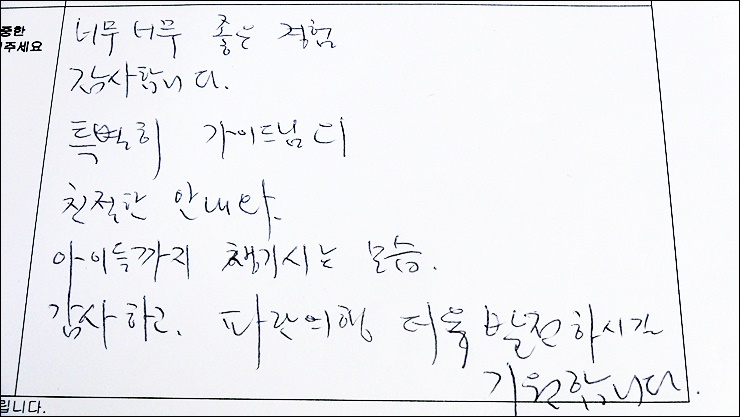 중한
주세요
너무너무 좋은 경험
감사합니다.
특별히 가이드님의
친절한 안내와.
아이들까지 챙기시는 모습.
감사하고. 파란여행 더욱 발전하시길
기원합니다.
립니다.